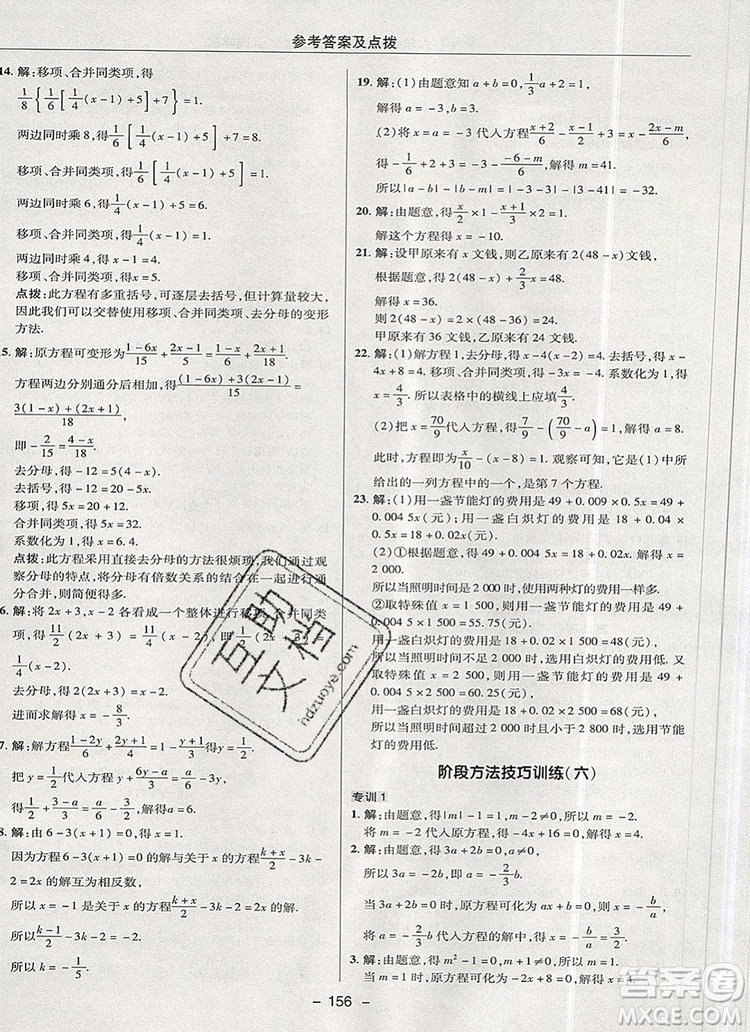 参考答案及点拨
14. 解:移项、合并同类项,得
1/8{1/6[1/4(x-1)+5]+7}=1.
两边同时乘8,得1/6[1/4(x-1)+5]+7=8.
移项、合并同类项,得1/6[1/4(x-1)+5]=1.
两边同时乘6,得1/4(x-1)+5=6.
移项、合并同类项,得1/4(x-1)=1.
两边同时乘4,得x-1=4.
移项、合并同类项,得x=5.
点拨:此方程有多重括号,可逐层去括号,但计算量较大,
因此我们可以交替使用移项、合并同类项、去分母的变形
方法.
5. 解:原方程可变形为(1-6x)/15+(2x-1)/5=(1-x)/6+(2x+1)/18.
方程两边分别通分后相加,得((1-6x)+3(2x-1))/15=
(3(1-x)+(2x+1))/18.
即-2/15=(4-x)/18.
去分母,得-12=5(4-x).
去括号,得-12=20-5x.
移项,得5x=20+12.
合并同类项,得5x=32.
系数化为1,得x=6.4.
点拨:此方程采用直接去分母的方法很烦琐,我们通过观
察分母的特点,将分母有倍数关系的结合在一起进行通
分合并,则简便得多.
6. 解:将2x+3,x-2各看成一个整体进行移项、合并同类
项,得11/2(2x+3)=11/4(x-2),即1/2(2x+3)
去分母,得2(2x+3)=x-2.
进而求解得x=-8/3.
7. 解:解方程(1-2y)/6+(2y+1)/4=1-(y+1)/3,得y=1/2.
把x=1/2代入方程x+(6x-a)/3=a/6-3x,
得1/2+(3-a)/3=a/6-3/2,解得a=6.
8. 解:由6-3(x+1)=0,得x=1.
因为方程6-3(x+1)=0的解与关于x的方程(k+x)/2-3k-
2=2x的解互为相反数,
所以x=-1是关于x的方程(k+x)/2-3k-2=2x的解.
所以(k-1)/2-3k-2=-2.
所以k=-1/5.
19. 解:(1)由题意知a+b=0,1/3a+1=0,
解得a=-3,b=3.
(2)将x=-6代入方程(x+2)/6-(x-m)/3=-(2x-m)/3,
得(-6+2)/6-(-6-m)/3=-(-12-m)/3,解得m=-4.
所以|a-b|-|b-m|=|-3-3|-|3-(-4)|=-1.
20. 解:由题意,得
解这个方程得x=-10.
21. 解:设甲原来有x文钱,则乙原来有2(48-x)文钱,
根据题意,得2(48-x)+2/3x=48,
解得x=36.
则2(48-x)=2×(48-36)=24.
甲原来有36文钱,乙原来有24文钱.
22. 解:(1)解方程1,去分母,得x-4(x-2)=4.去括号,得x-
4x+8=4.移项、合并同类项,得-3x=-4.系数化为1,得
x=4/3.所以表格中的横线上应填4/3.
(2)把x=70/9代入方程,得7/9-(70/9-a)=1,解得a=8.
此时,方程为x/10-(x-8)=1.观察可知,它是(1)中所给
出的一列方程中的一个方程,是第7个方程.
23. 解:(1)用一盏节能灯的费用是49+0.009×0.5x=49+
0.004 5x(元);用一盏白炽灯的费用是18+0.04×0.5x=
18+0.02x(元).
(2)①根据题意,得49+0.004 5x=18+0.02x,解得x=
2 000.
所以当照明时间是2 000时,使用两种灯的费用一样多.
②取特殊值x=1 500,则用一盏节能灯的费用是49+
0.004 5×1 500=55.75(元),
用一盏白炽灯的费用是18+0.02×1 500=48(元),
所以当照明时间小于2 000时,选用白炽灯的费用低.又
取特殊值x=2 500,则用一盏节能灯的费用是49+
0.004 5×2 500=60.25(元),
用一盏白炽灯的费用是18+0.02×2 500=68(元),
所以当照明时间超过2 000且小于2 800时,选用节能
灯的费用低.
阶段方法技巧训练(六)
专训1
1. 解:由题意,得|m|-1=0,m-1≠0,所以m=-1.
将m=-1代入原方程,得-4x+16=0,解得x=4.
2. 解:由题意,得3a+2b=0,a≠0.
所以3a=-2b,b≠0,所以a/b=-2/3.
原方程可化为ax=-b,所以x=-b/a=3/2.
3. 解:由题意,得m²-1=0,且-(m+1)≠0,所以m=1.
当m=1时,原方程可化为-2x+8=0,解得x=4,
- 156 -
互助
文档
hdzuoye.com
答案圈
MXQE.COM